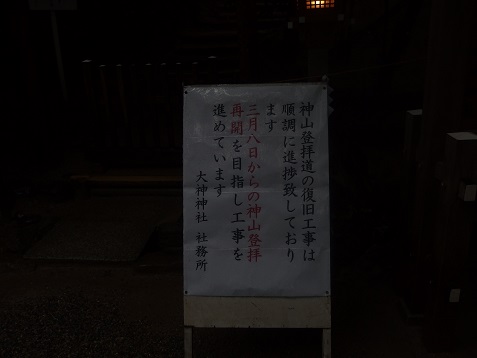 神山登拝道の復旧工事は
順調に進捗致しており
ます
三月八日からの神山登拝
再開を目指し工事を
進めています
大神神社 社務所